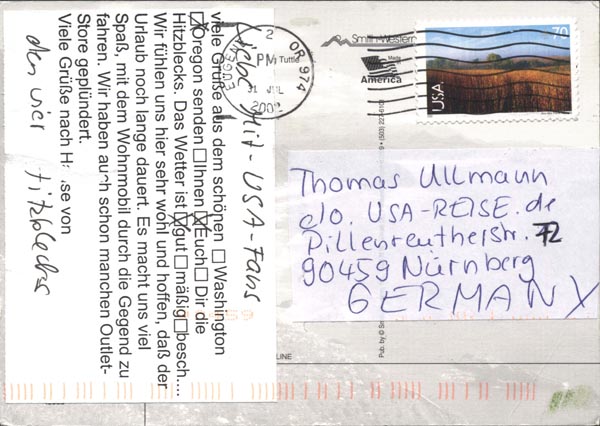 Liebe Mit-USA-Fans
viele Grüße aus dem schönen ☐ Washington
☒ Oregon senden ☐ Ihnen ☒ Euch ☐ Dir die
Hitzblecks. Das Wetter ist ☒ gut ☐ mäßig ☐ besch....
Wir fühlen uns hier sehr wohl und hoffen, daß der
Urlaub noch lange dauert. Es macht uns viel
Spaß, mit dem Wohnmobil durch die Gegend zu
fahren. Wir haben auch schon manchen Outlet-
Store geplündert.
Viele Grüße nach H se von
den vier Hitzblecks
EUGENE OR 974
2 PM
31 JUL
Smith-Western
Tuttle
Made
America
(503) 22
Pub. by © Sm
LINE
USA
70
Thomas Ullmann
c/o. USA-REISE.de
Dillenreutherstr. 72
90459 Nürnberg
GERMANY